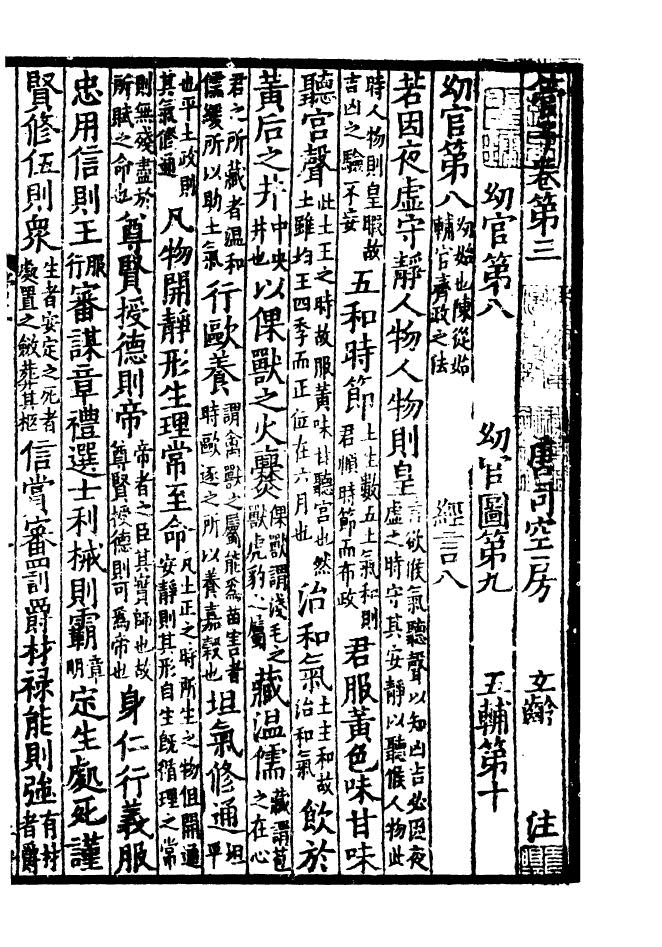 管子卷第三 唐司空房 玄齡 注
幼官第八 幼官圖第九 五輔第十
幼官第八 幼始也陳從始輔官齊政之法 經言八
若因夜虛守靜人物人物則皇 言欲候氣聽聲以知凶吉必因夜虛之時守其安靜以聽候人物此
時人物則皇暇故吉凶之驗不妄 五和時節 土生數五土氣和則君順時節而布政 君服黃色味甘味
聽宮聲 此土王之時故服黃味甘聽宮也然土雖均王四季而正位在六月也 治和氣 土主和故治和氣 飲於
黃后之井 中央井也 以倮獸之火爨 倮獸謂淺毛之獸虎豹之屬 藏溫儒 藏謂苞之在心
君之所藏者溫和儒緩所以助土氣 行歐養 謂禽獸之屬能為苗害者時歐逐之所以養嘉穀也 坦氣修通 坦平
也平土政則其氣修通 凡物開靜形生理常至命 凡土正之時所生之物但開通安靜則其形自生既循理之常
則無殘盡於所賦之命也 尊賢授德則帝 帝者之臣其實師也故尊賢授德則可爲帝也 身仁行義服
忠用信則王 服行 審謀章禮選士利械則霸 章明 定生處死謹
賢修伍則衆 生者安定之死者處置之斂葬其柩 信賞審罰爵材祿能則強 有材者爵